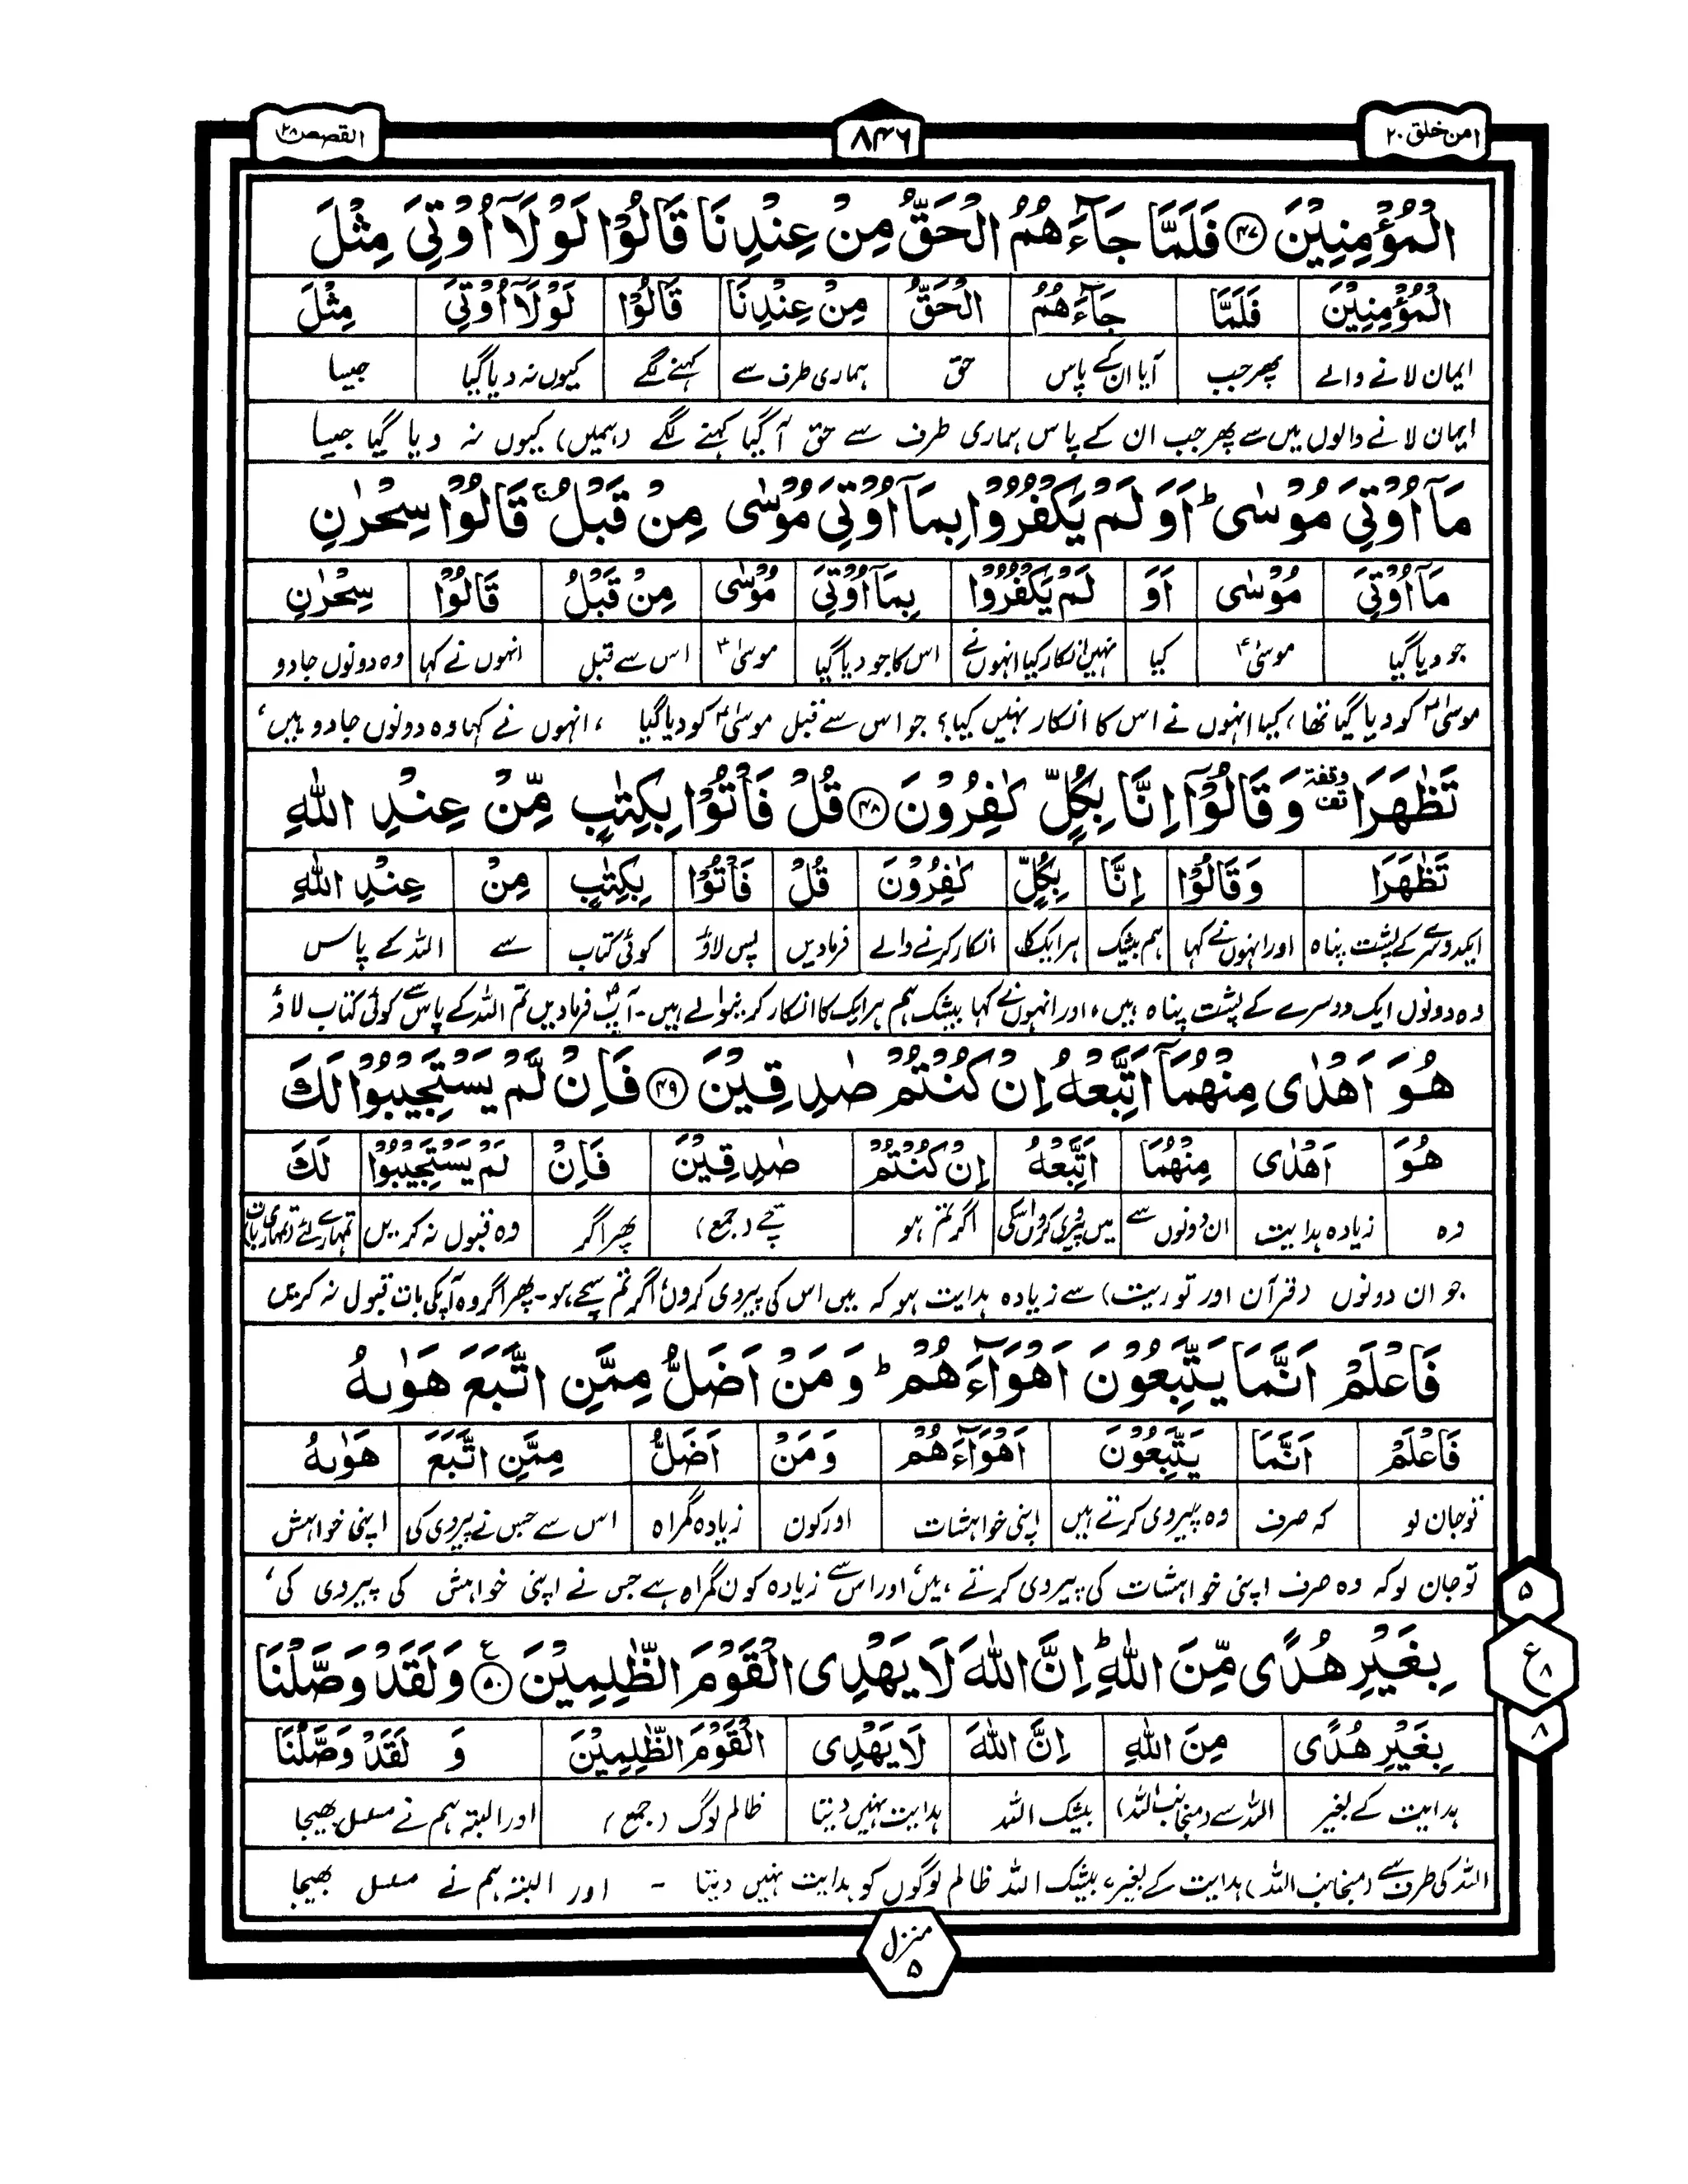 امن خلق ۲۰
۸۴۶
القصص ۲۸
الْمُؤْمِنِيْنَ ۝۴۷ فَلَمَّا جَآءَهُمُ الْحَقُّ مِنْ عِنْدِنَا قَالُوْا لَوْلَاۤ اُوْتِیَ مِثْلَ
الْمُؤْمِنِيْنَ فَلَمَّا جَآءَهُمُ الْحَقُّ مِنْ عِنْدِنَا قَالُوْا لَوْلَاۤ اُوْتِیَ مِثْلَ
ایمان لانے والے پھر جب آیا ان کے پاس حق ہماری طرف سے کہنے لگے کیوں نہ دیا گیا جیسا
ایمان لانے والوں میں سے پھر جب ان کے پاس ہماری طرف سے حق آ گیا کہنے لگے (ہمیں) کیوں نہ دیا گیا جیسا
مَاۤ اُوْتِیَ مُوْسٰی ؕ اَوَ لَمْ یَكْفُرُوْا بِمَاۤ اُوْتِیَ مُوْسٰی مِنْ قَبْلُ ۚ قَالُوْا سِحْرٰنِ
مَاۤ اُوْتِیَ مُوْسٰی اَوَ لَمْ یَكْفُرُوْا بِمَاۤ اُوْتِیَ مُوْسٰی مِنْ قَبْلُ قَالُوْا سِحْرٰنِ
جو دیا گیا موسیٰؑ کیا نہیں انکار کیا انہوں نے اس کا جو دیا گیا موسیٰؑ اس سے قبل انہوں نے کہا وہ دونوں جادو
موسیٰؑ کو دیا گیا تھا، کیا انہوں نے اس کا انکار نہیں کیا؟ جو اس سے قبل موسیٰؑ کو دیا گیا ، انہوں نے کہا وہ دونوں جادو ہیں،
تَظٰهَرَا وقفة وَ قَالُوْۤا اِنَّا بِكُلٍّ كٰفِرُوْنَ ۝۴۸ قُلْ فَاْتُوْا بِكِتٰبٍ مِّنْ عِنْدِ اللّٰهِ
تَظٰهَرَا وَ قَالُوْا اِنَّا بِكُلٍّ كٰفِرُوْنَ قُلْ فَاْتُوْا بِكِتٰبٍ مِنْ عِنْدِ اللّٰهِ
ایک دوسرے کے پشت پناہ اور انہوں نے کہا ہم بیشک ہر ایک کا انکار کرنے والے فرما دیں پس لاؤ کوئی کتاب سے اللہ کے پاس
وہ دونوں ایک دوسرے کے پشت پناہ ہیں، اور انہوں نے کہا بیشک ہم ہر ایک کا انکار کرنیوالے ہیں۔ آپؐ فرما دیں تم اللہ کے پاس سے کوئی کتاب لاؤ
هُوَ اَهْدٰی مِنْهُمَاۤ اَتَّبِعْهُ اِنْ كُنْتُمْ صٰدِقِیْنَ ۝۴۹ فَاِنْ لَّمْ یَسْتَجِیْبُوْا لَكَ
هُوَ اَهْدٰی مِنْهُمَا اَتَّبِعْهُ اِنْ كُنْتُمْ صٰدِقِیْنَ فَاِنْ لَمْ یَسْتَجِیْبُوْا لَكَ
وہ زیادہ ہدایت ان دونوں سے میں پیروی کروں اس کی اگر تم ہو سچے (جمع) پھر اگر وہ قبول نہ کریں تمہارے لئے (تمہاری بات)
جو ان دونوں (قرآن اور توریت) سے زیادہ ہدایت ہو کہ میں اس کی پیروی کروں، اگر تم سچے ہو۔ پھر اگر وہ آپکی بات قبول نہ کریں
فَاعْلَمْ اَنَّمَا یَتَّبِعُوْنَ اَهْوَآءَهُمْ ؕ وَ مَنْ اَضَلُّ مِمَّنِ اتَّبَعَ هَوٰىهُ
فَاعْلَمْ اَنَّمَا یَتَّبِعُوْنَ اَهْوَآءَهُمْ وَ مَنْ اَضَلُّ مِمَّنِ اتَّبَعَ هَوٰىهُ
تو جان لو کہ صرف وہ پیروی کرتے ہیں اپنی خواہشات اور کون زیادہ گمراہ اس سے جس نے پیروی کی اپنی خواہش
تو جان لو کہ وہ صرف اپنی خواہشات کی پیروی کرتے ہیں، اور اس سے زیادہ کون گمراہ ہے جس نے اپنی خواہش کی پیروی کی،
۵
بِغَیْرِ هُدًی مِّنَ اللّٰهِ ؕ اِنَّ اللّٰهَ لَا یَهْدِی الْقَوْمَ الظّٰلِمِیْنَ ۝۵۰ ع وَ لَقَدْ وَصَّلْنَا
ع ۸
بِغَیْرِ هُدًی مِنَ اللّٰهِ اِنَّ اللّٰهَ لَا یَهْدِی الْقَوْمَ الظّٰلِمِیْنَ وَ لَقَدْ وَصَّلْنَا
۸
ہدایت کے بغیر اللہ سے (منجانب اللہ) بیشک اللہ ہدایت نہیں دیتا ظالم لوگ (جمع) اور البتہ ہم نے مسلسل بھیجا
اللہ کی طرف سے (منجانب اللہ) ہدایت کے بغیر، بیشک اللہ ظالم لوگوں کو ہدایت نہیں دیتا ۔ اور البتہ ہم نے مسلسل بھیجا
منزل ۵